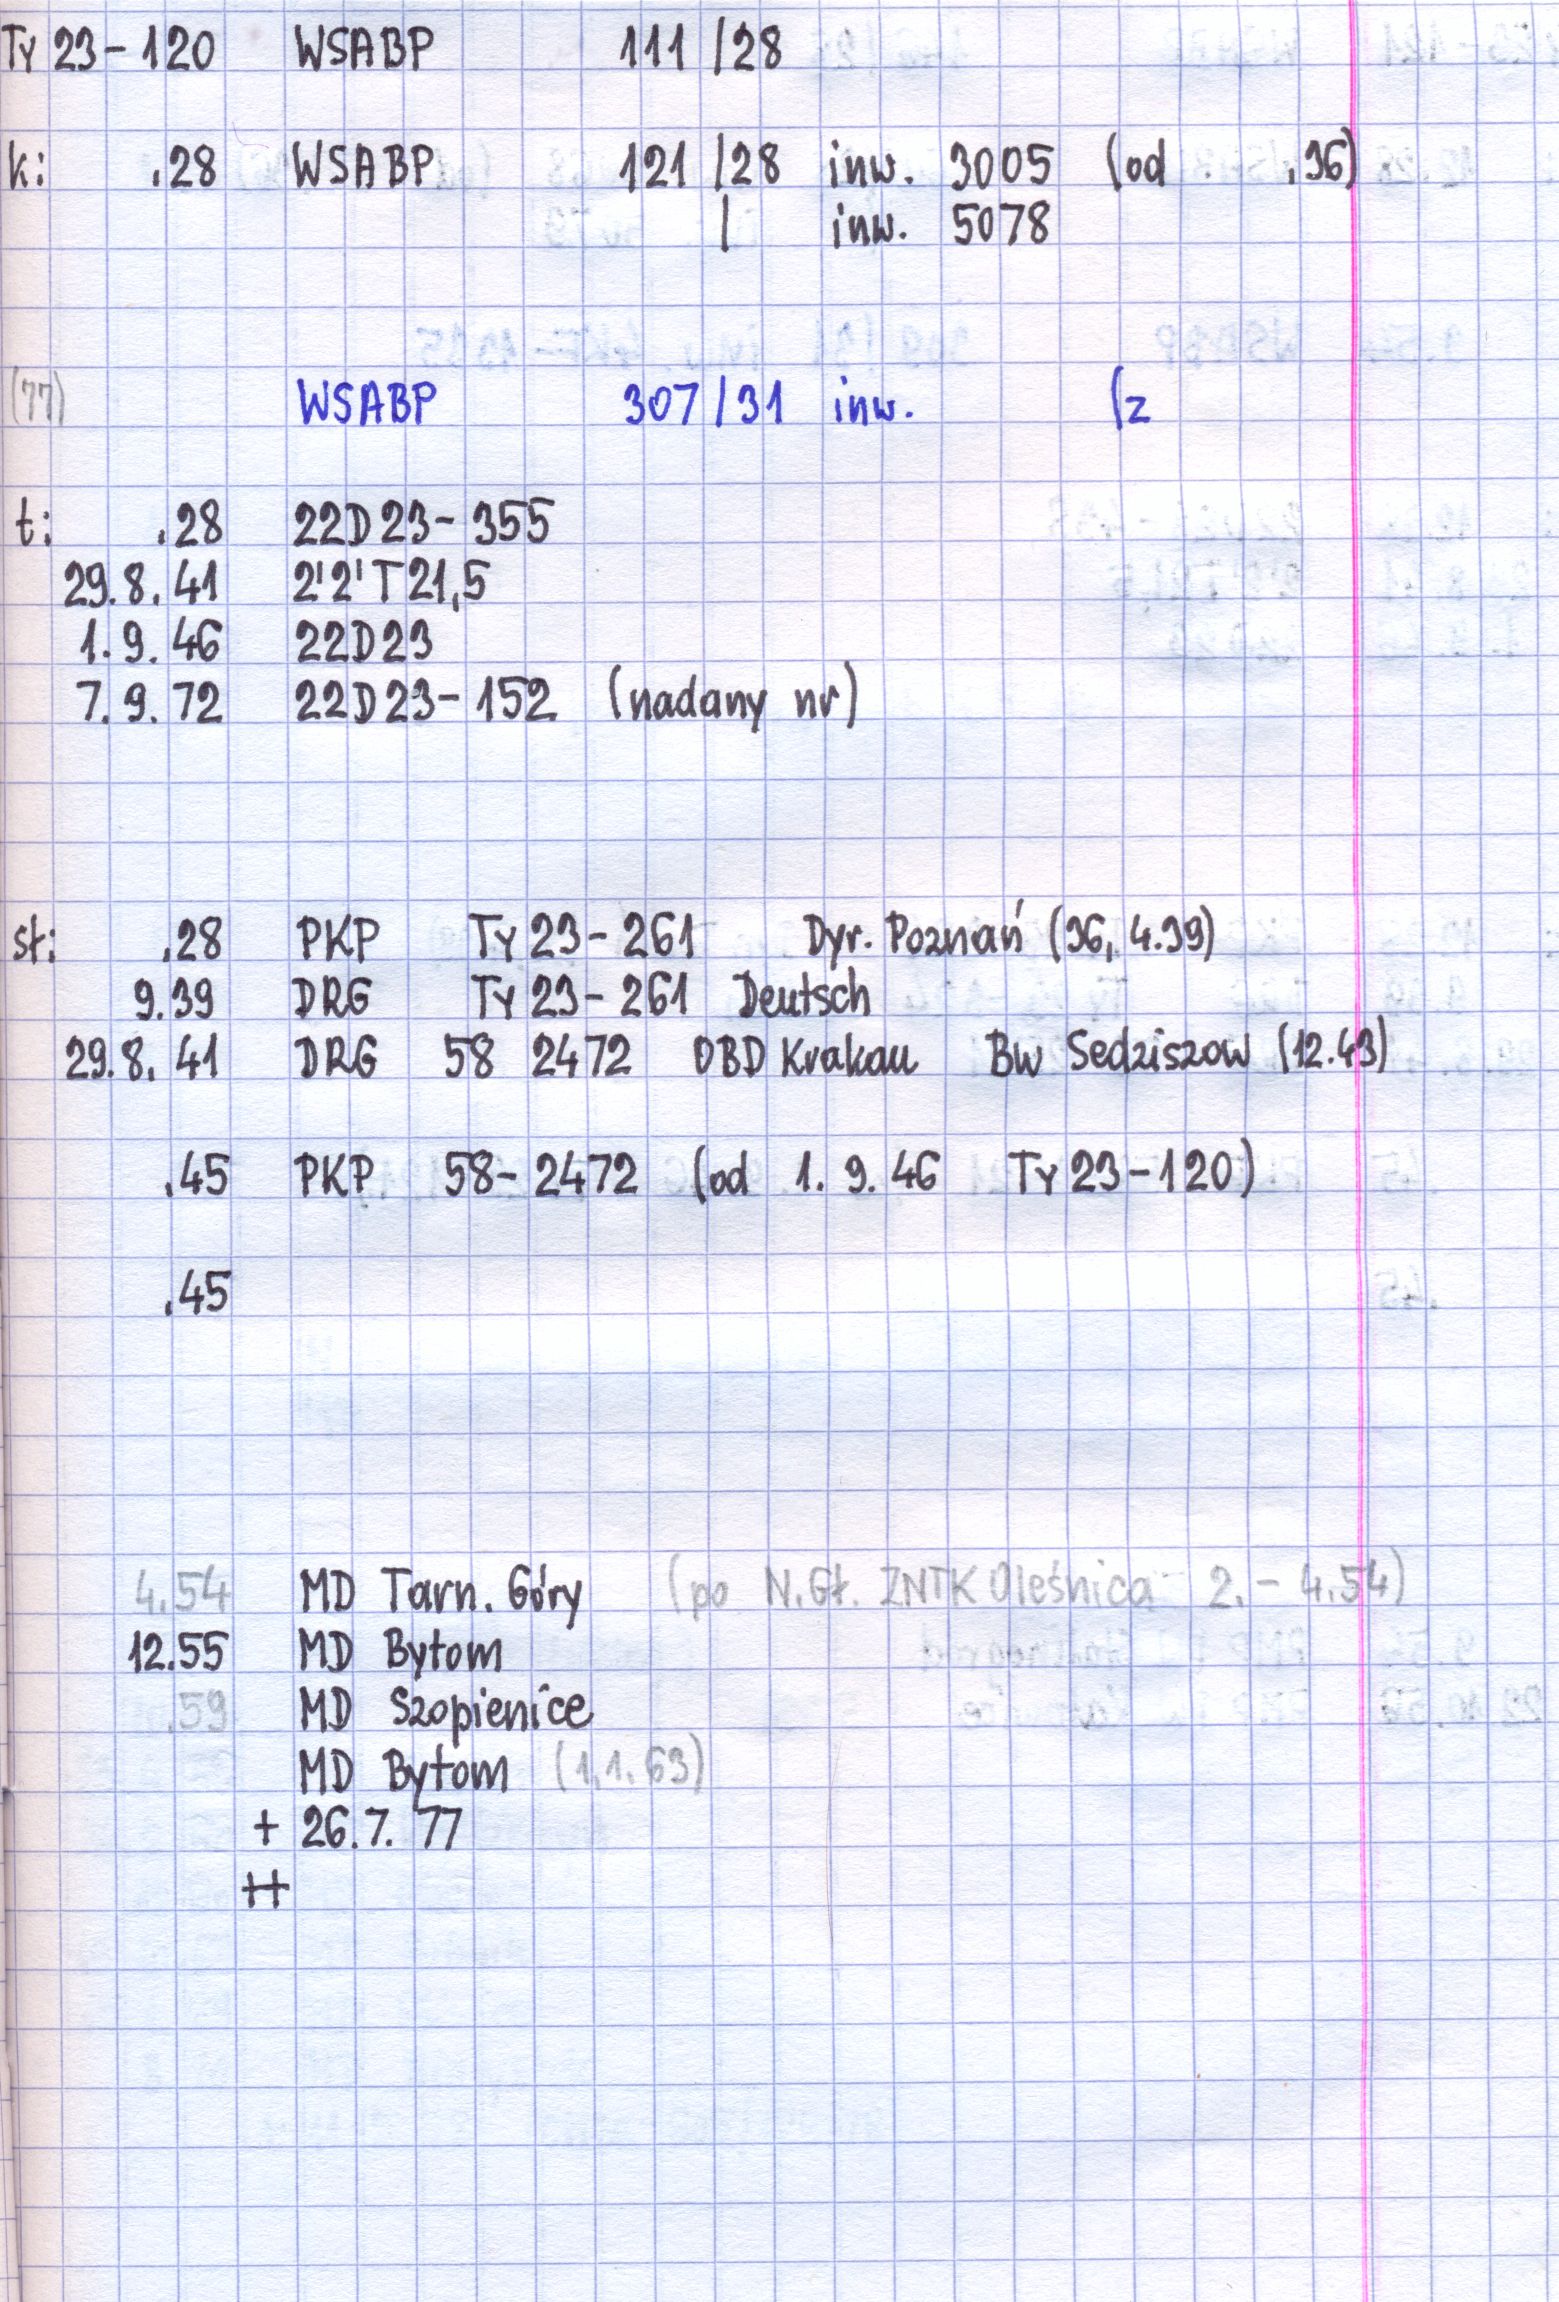 Ty 23-120 WSABP 111/28
k: .28 WSABP 121/28 inw. 3005 (od .36)
/ inw. 5078
(77) WSABP 307/31 inw. (z
t: .28 22D23-355
29.8.41 2'2'T21,5
1.9.46 22D23
7.9.72 22D23-152 (nadany nr)
sł: .28 PKP Ty 23-261 Dyr. Poznań (36, 4.39)
9.39 DRG Ty 23-261 Deutsch
29.8.41 DRG 58 2472 OBD Krakau Bw Sedziszow (12.43)
.45 PKP 58-2472 (od 1.9.46 Ty 23-120)
.45
4.54 MD Tarn. Góry (po N.Gł. ZNTK Oleśnica 2.-4.54)
12.55 MD Bytom
.59 MD Szopienice
MD Bytom (1.1.63)
+ 26.7.77
++